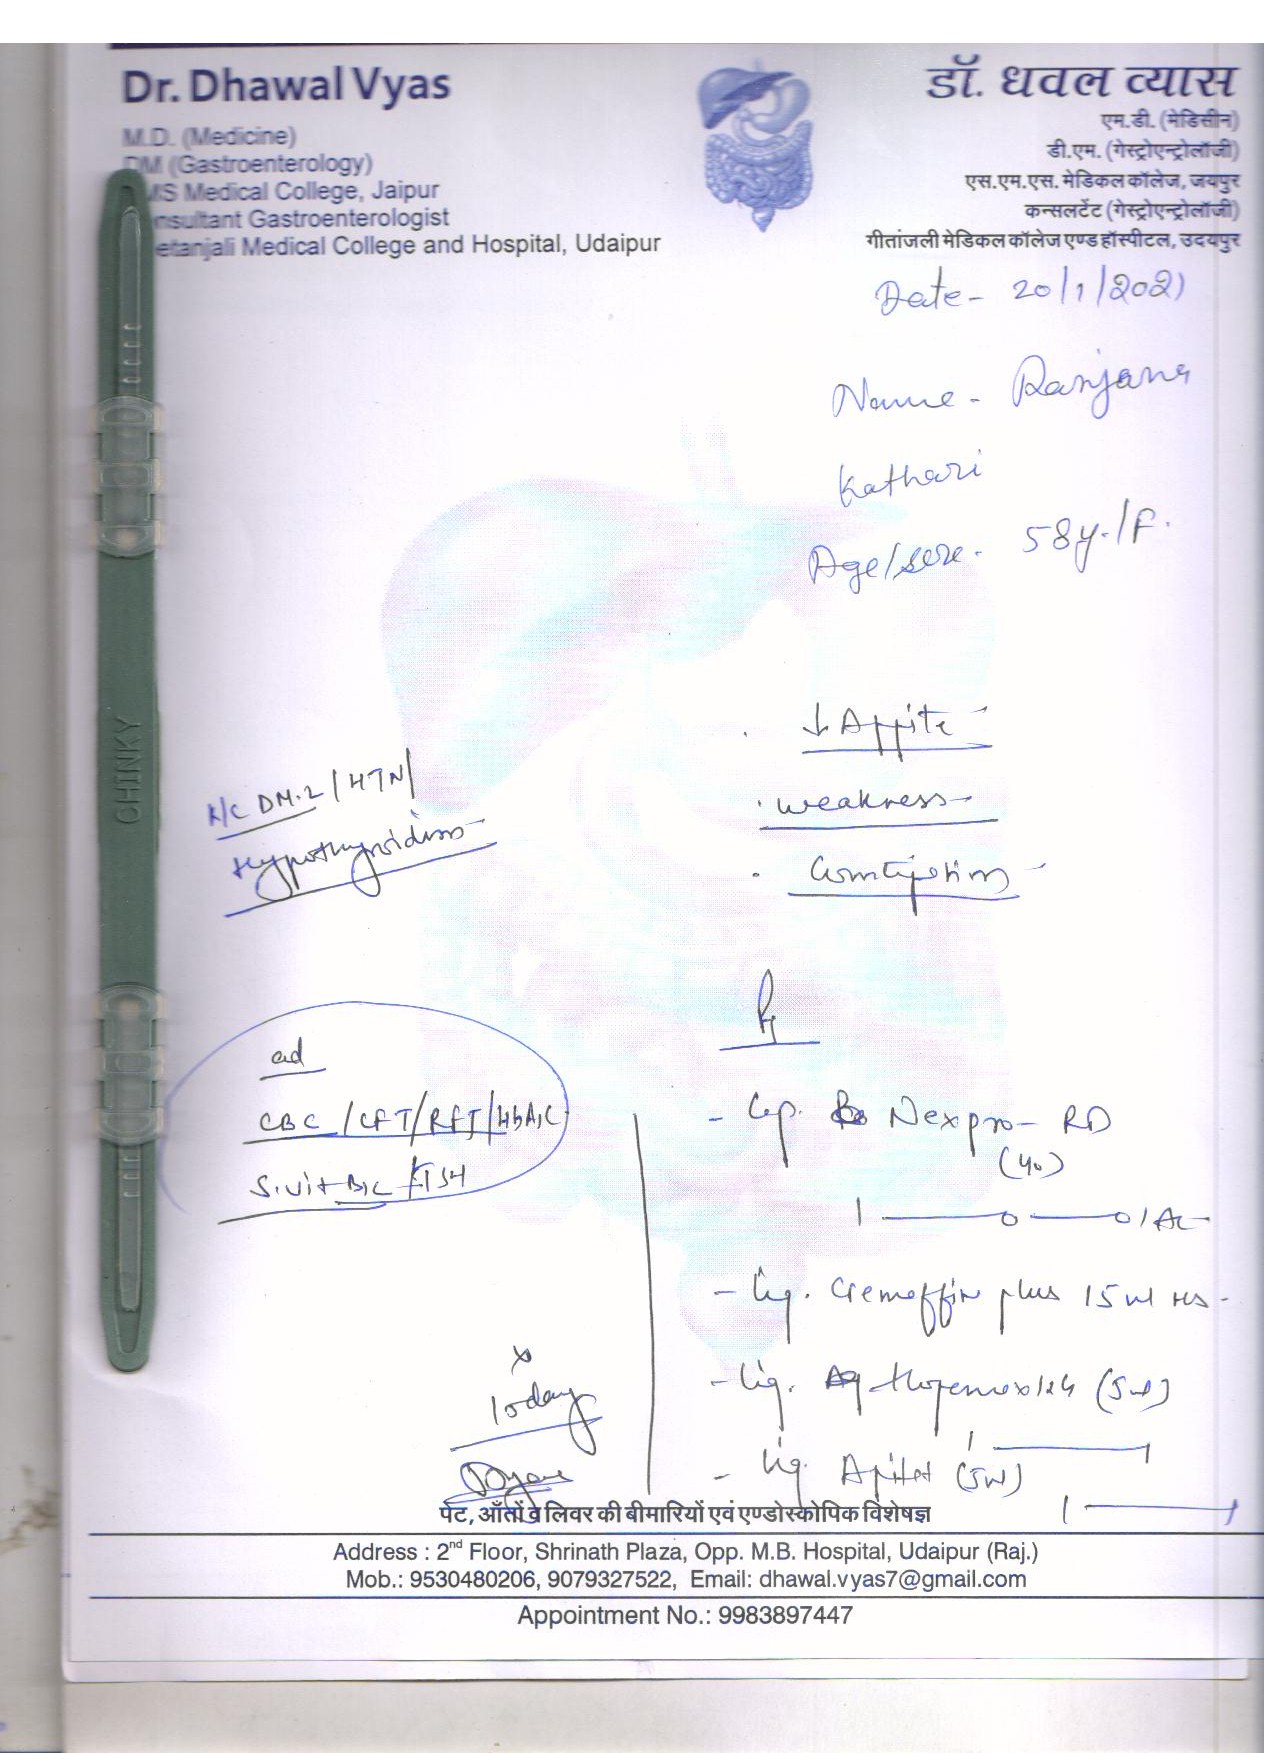 Dr. Dhawal Vyas
M.D. (Medicine)
DM (Gastroenterology)
MS Medical College, Jaipur
nsultant Gastroenterologist
etanjali Medical College and Hospital, Udaipur
डॉ. धवल व्यास
एम.डी. (मेडिसीन)
डी.एम. (गेस्ट्रोएन्ट्रोलॉजी)
एस.एम.एस. मेडिकल कॉलेज, जयपुर
कन्सलटेंट (गेस्ट्रोएन्ट्रोलॉजी)
गीतांजली मेडिकल कॉलेज एण्ड हॉस्पीटल, उदयपुर
Date - 20/1/2021
Name - Ranjana
Kathari
Age/sex - 58y./F.
CHINKY
↓ Appite
. weakness
. Constipation
K/C DM-2 / HTN /
Hypothyroidism
ad
CBC / LFT / RFT / HbA1C
S. Vit B12 / TSH
Rx
- Cap. Nexpro - RD
(40)
1 — 0 — 0 / AC
- Liq. Cremaffin plus 15 ml HS
- Liq. (5ml)
1 — 1
- Liq. (5ml)
1 — 1
x
10 days
पेट, आँतों व लिवर की बीमारियों एवं एण्डोस्कोपिक विशेषज्ञ
Address : 2nd Floor, Shrinath Plaza, Opp. M.B. Hospital, Udaipur (Raj.)
Mob.: 9530480206, 9079327522, Email: dhawal.vyas7@gmail.com
Appointment No.: 9983897447